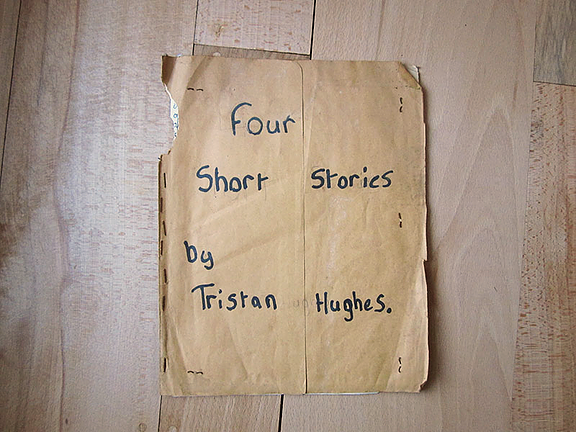 Four
Short Stories
by
Tristan Hughes.